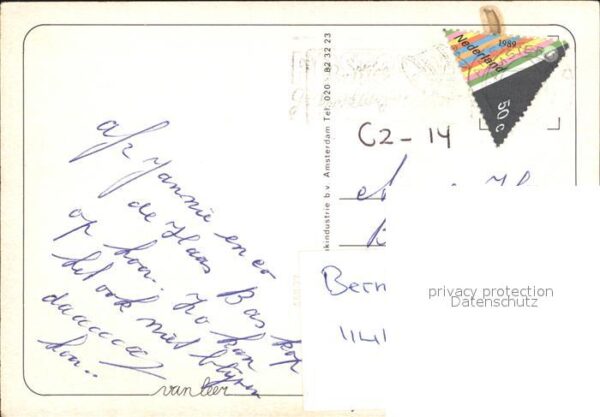 afz Jannie en co
de Haas Bas kop
op hoor. Zo kan
het ook niet blijven
daaaaag
hoor..
van leer
ikindustrie b.v. Amsterdam Tel. 020 - 82 32 23
Nederland
1989
50 c
C2-14
Bern
1141
privacy protection
Datenschutz